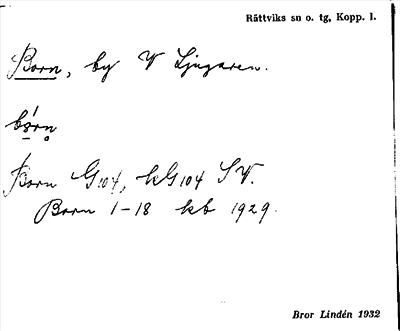 Rättviks sn o. tg, Kopp. l.
Born, by V Ljugaren.
bọ́rṇ
Born G104, kG104 SV.
Born 1-18 kb 1929.
Bror Lindén 1932